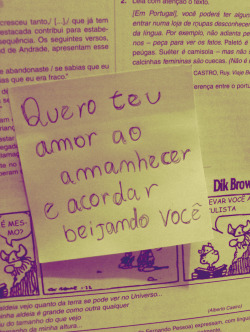 cresceu tanto,/ [...],/ que já tem
estacada contribui para estabe-
sequência. Os seguintes versos,
d de Andrade, apresentam esse
abandonaste / se sabias que eu
as que eu era fraco."
2. Leia com atenção o texto.
[Em Portugal], você poderá ter algun
entrar numa loja de roupas desconhecen
da língua. Por exemplo, não adianta pe
nos – peça para ver os fatos. Paletó é
peúgas. Suéter é camisola — mas não
calcinhas femininas são cuecas. (Não é
CASTRO, Ruy. Viaje B
erença entre o port
Quero teu
amor ao
amanhecer
e acordar
beijando você
É MES-
MO?
Dik Brow
EVAR VOCÊ A
ULISTA
aldeia vejo quanto da terra se pode ver no Universo...
nha aldeia é grande como outra qualquer
ou do tamanho do que vejo
nho da minha altura...
(Alberto Caeiro)
Fernando Pessoa) expressam, com lingu